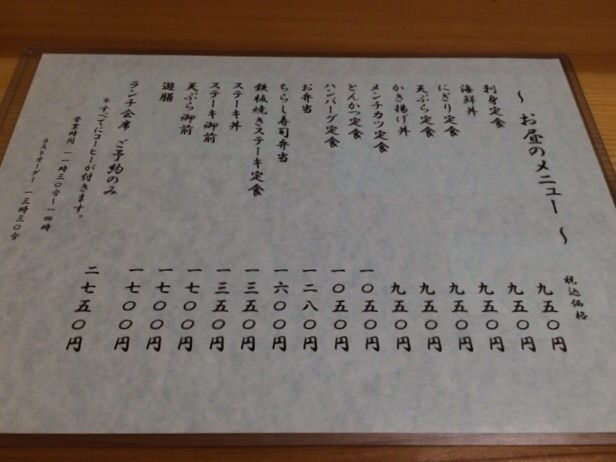 ～ お昼のメニュー ～
税込価格
刺身定食 九五〇円
海鮮丼 九五〇円
にぎり定食 九五〇円
天ぷら定食 九五〇円
かき揚げ丼 九五〇円
メンチカツ定食 九五〇円
とんかつ定食 一〇五〇円
ハンバーグ定食 一〇五〇円
お弁当 一二八〇円
ちらし寿司弁当 一六〇〇円
鉄板焼きステーキ定食 一三五〇円
ステーキ丼 一三五〇円
ステーキ御前 一七〇〇円
天ぷら御前 一七〇〇円
遊膳 一七〇〇円
ランチ会席 ご予約のみ 二七五〇円
※すべてにコーヒーが付きます。
営業時間 一一時三〇分～一四時
ラストオーダー 一三時三〇分